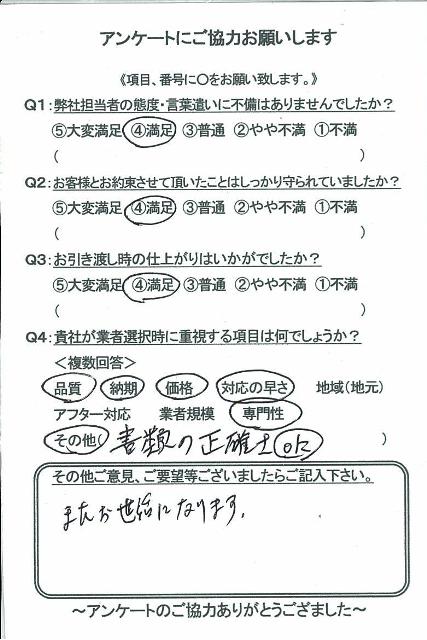 アンケートにご協力お願いします
《項目、番号に〇をお願い致します。》
Q1:弊社担当者の態度・言葉遣いに不備はありませんでしたか?
⑤大変満足 ④満足 ③普通 ②やや不満 ①不満
( )
Q2:お客様とお約束させて頂いたことはしっかり守られていましたか?
⑤大変満足 ④満足 ③普通 ②やや不満 ①不満
( )
Q3:お引き渡し時の仕上がりはいかがでしたか?
⑤大変満足 ④満足 ③普通 ②やや不満 ①不満
( )
Q4:貴社が業者選択時に重視する項目は何でしょうか?
<複数回答>
品質 納期 価格 対応の早さ 地域(地元)
アフター対応 業者規模 専門性
その他( 書類の正確さ )
その他ご意見、ご要望等ございましたらご記入下さい。
またお世話になります。
~アンケートのご協力ありがとうござました~